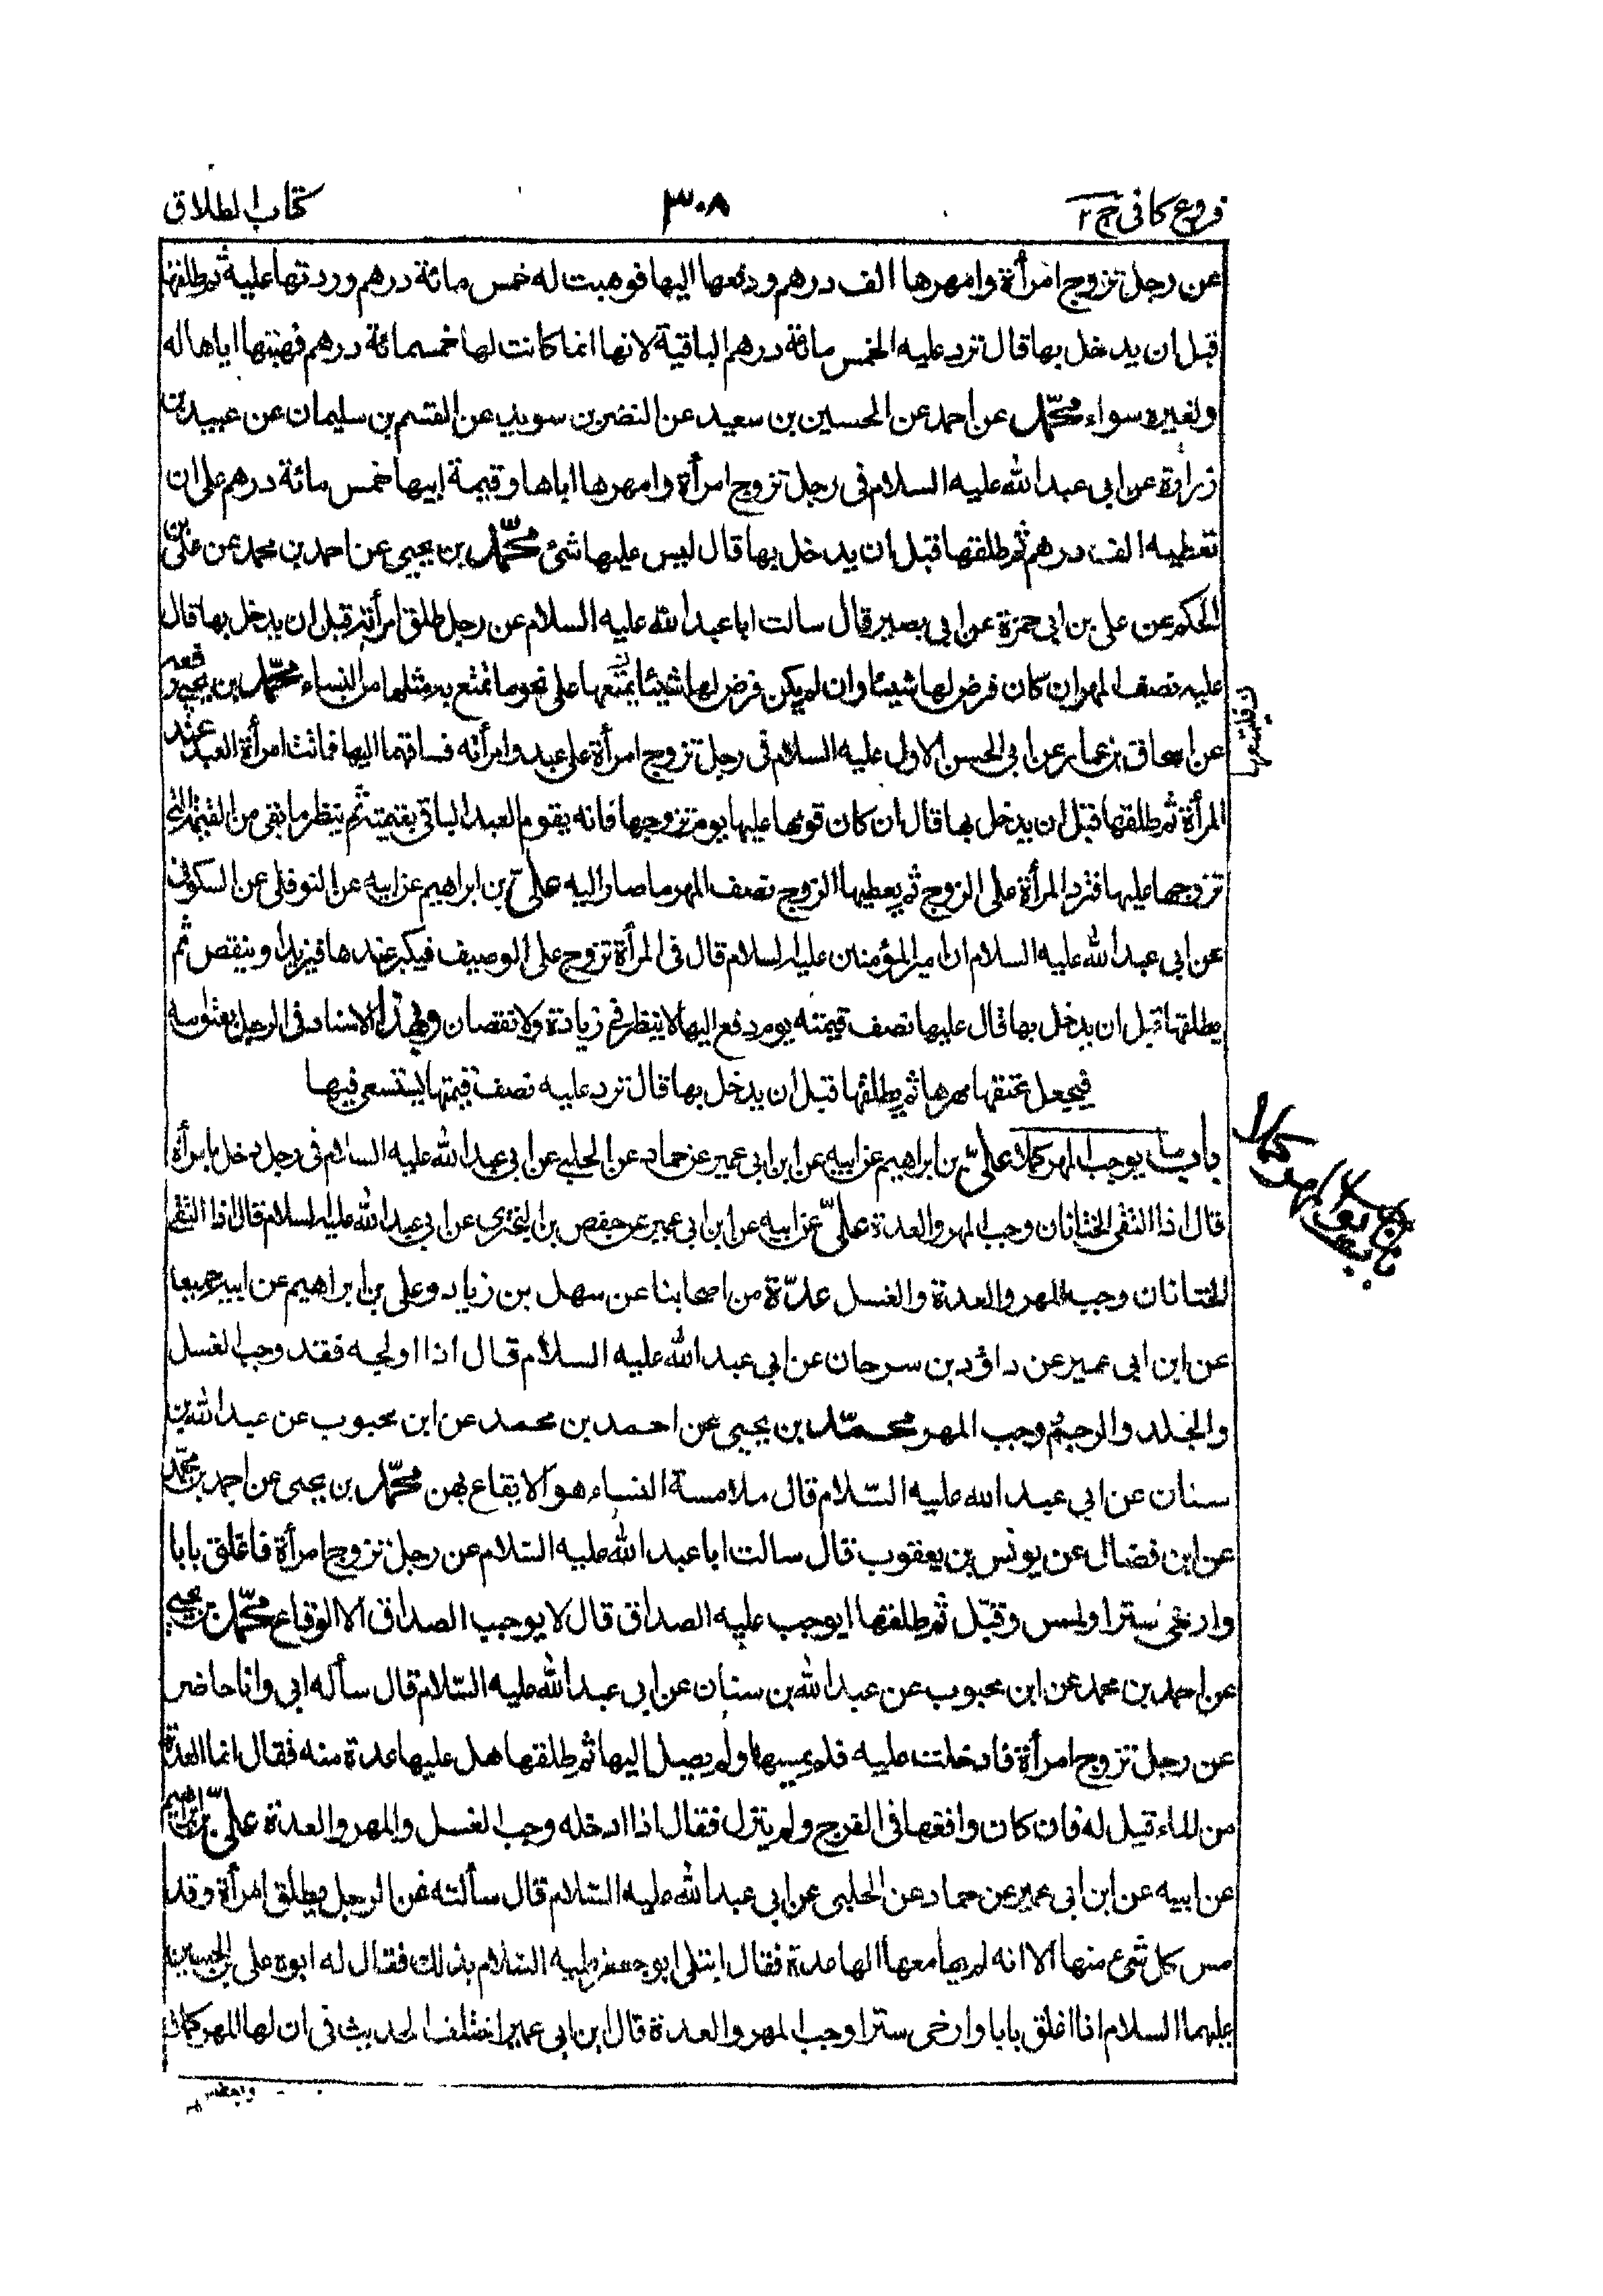 فروع كافى ج ٢
٣٠٨
كتاب الطلاق
عن رجل تزوج امرأة وامهرها الف درهم ودفعها اليها فوهبت له خمس مائة درهم وردتها عليه ثم طلقها
قبل ان يدخل بها قال ترد عليه الخمس مائة درهم الباقية لانها انما كانت لها خمسمائة درهم فهبتها اياها له
ولغيره سواء محمّد عن احمد عن الحسين بن سعيد عن النضر بن سويد عن القسم بن سليمان عن عبيد بن
زرارة عن ابي عبد الله عليه السلام فى رجل تزوج امرأة وامهرها اباها وقيمة ابيها خمس مائة درهم على ان
تعطيه الف درهم ثم طلقها قبل ان يدخل بها قال ليس عليها شئ محمّد بن يحيى عن احمد بن محمد عن على بن
الحكم عن على بن ابى حمزة عن ابى بصير قال سالت ابا عبد الله عليه السلام عن رجل طلق امرأته قبل ان يدخل بها قال
عليه نصف المهر ان كان فرض لها شيئا وان لم يكن فرض لها شيئا يمتعها على نحو ما تمتع به مثلها من النساء محمّد بن يحيى رفعه
عن اسحاق بن عمار عن ابى الحسن الاول عليه السلام فى رجل تزوج امرأة على عبد وامرأته فساقهما اليها فماتت امرأة العبد عند
المرأة ثم طلقها قبل ان يدخل بها قال ان كان قومها عليها يوم تزوجها فانه يقوم العبد الباقى بقيمته ثم ينظر ما بقى من القيمة التى
تزوجها عليها فترد المرأة على الزوج ثم يعطيها الزوج نصف المهر مما صار اليه علىّ بن ابراهيم عن ابيه عن النوفلى عن السكونى
عن ابي عبد الله عليه السلام ان امير المؤمنين عليه السلام قال فى المرأة تزوج على الوصيف فيكبر عندها فيزيد او ينقص ثم
يطلقها قبل ان يدخل بها قال عليها نصف قيمته يوم دفع اليها لا ينظر فى زيادة ولا نقصان وبهذا الاسناد فى الرجل يعتق امته
فيجعل عتقها مهرها ثم يطلقها قبل ان يدخل بها قال ترد عليه نصف قيمتها يستسعى فيها
باب ما يوجب المهر كملا علىّ بن ابراهيم عن ابيه عن ابن ابى عمير عن حماد عن الحلبى عن ابى عبد الله عليه السلام فى رجل دخل بامرأة
قال اذا التقى الختانان وجب المهر والعدة علىّ عن ابيه عن ابن ابى عمير عن حفص بن البخترى عن ابى عبد الله عليه السلام قال اذا التقى
الختانان وجب المهر والعدة والغسل عدّة من اصحابنا عن سهل بن زياد وعلى بن ابراهيم عن ابيه جميعا
عن ابن ابى عمير عن داؤد بن سرحان عن ابى عبد الله عليه السلام قال اذا اولجه فقد وجب الغسل
والجلد والرجم ووجب المهر محمّد بن يحيى عن احمد بن محمد عن ابن محبوب عن عبد الله بن
سنان عن ابى عبد الله عليه السّلام قال ملامسة النساء هو الايقاع بهن محمّد بن يحيى عن احمد بن محمّد
عن ابن فضال عن يونس بن يعقوب قال سالت ابا عبد الله عليه السّلام عن رجل تزوج امرأة فاغلق بابا
وارخى سترا ولمس وقبّل ثم طلقها ايوجب عليه الصداق قال لا يوجب الصداق الا الوقاع محمّد بن يحيى
عن احمد بن محمد عن ابن محبوب عن عبد الله بن سنان عن ابى عبد الله عليه السّلام قال سأله ابى وانا حاضر
عن رجل تزوج امرأة فادخلت عليه فلم يمسها ولم يصل اليها ثم طلقها هل عليها عدة منه فقال انما العدة
من الماء قيل له فان كان واقعها فى الفرج ولم ينزل فقال اذا ادخله وجب الغسل والمهر والعدة علىّ بن ابراهيم
عن ابيه عن ابن ابى عمير عن حماد عن الحلبى عن ابى عبد الله عليه السّلام قال سألته عن الرجل يطلق امرأة وقد
مس كل شئ منها الا انه لم يجامعها الها عدة فقال ابتلى ابو جعفر عليه السّلام بذلك فقال له ابوه على بن الحسين
عليهما السلام اذا اغلق بابا وارخى سترا وجب المهر والعدة قال ابن ابى عمير اختلف الحديث فى ان لها المهر كملا